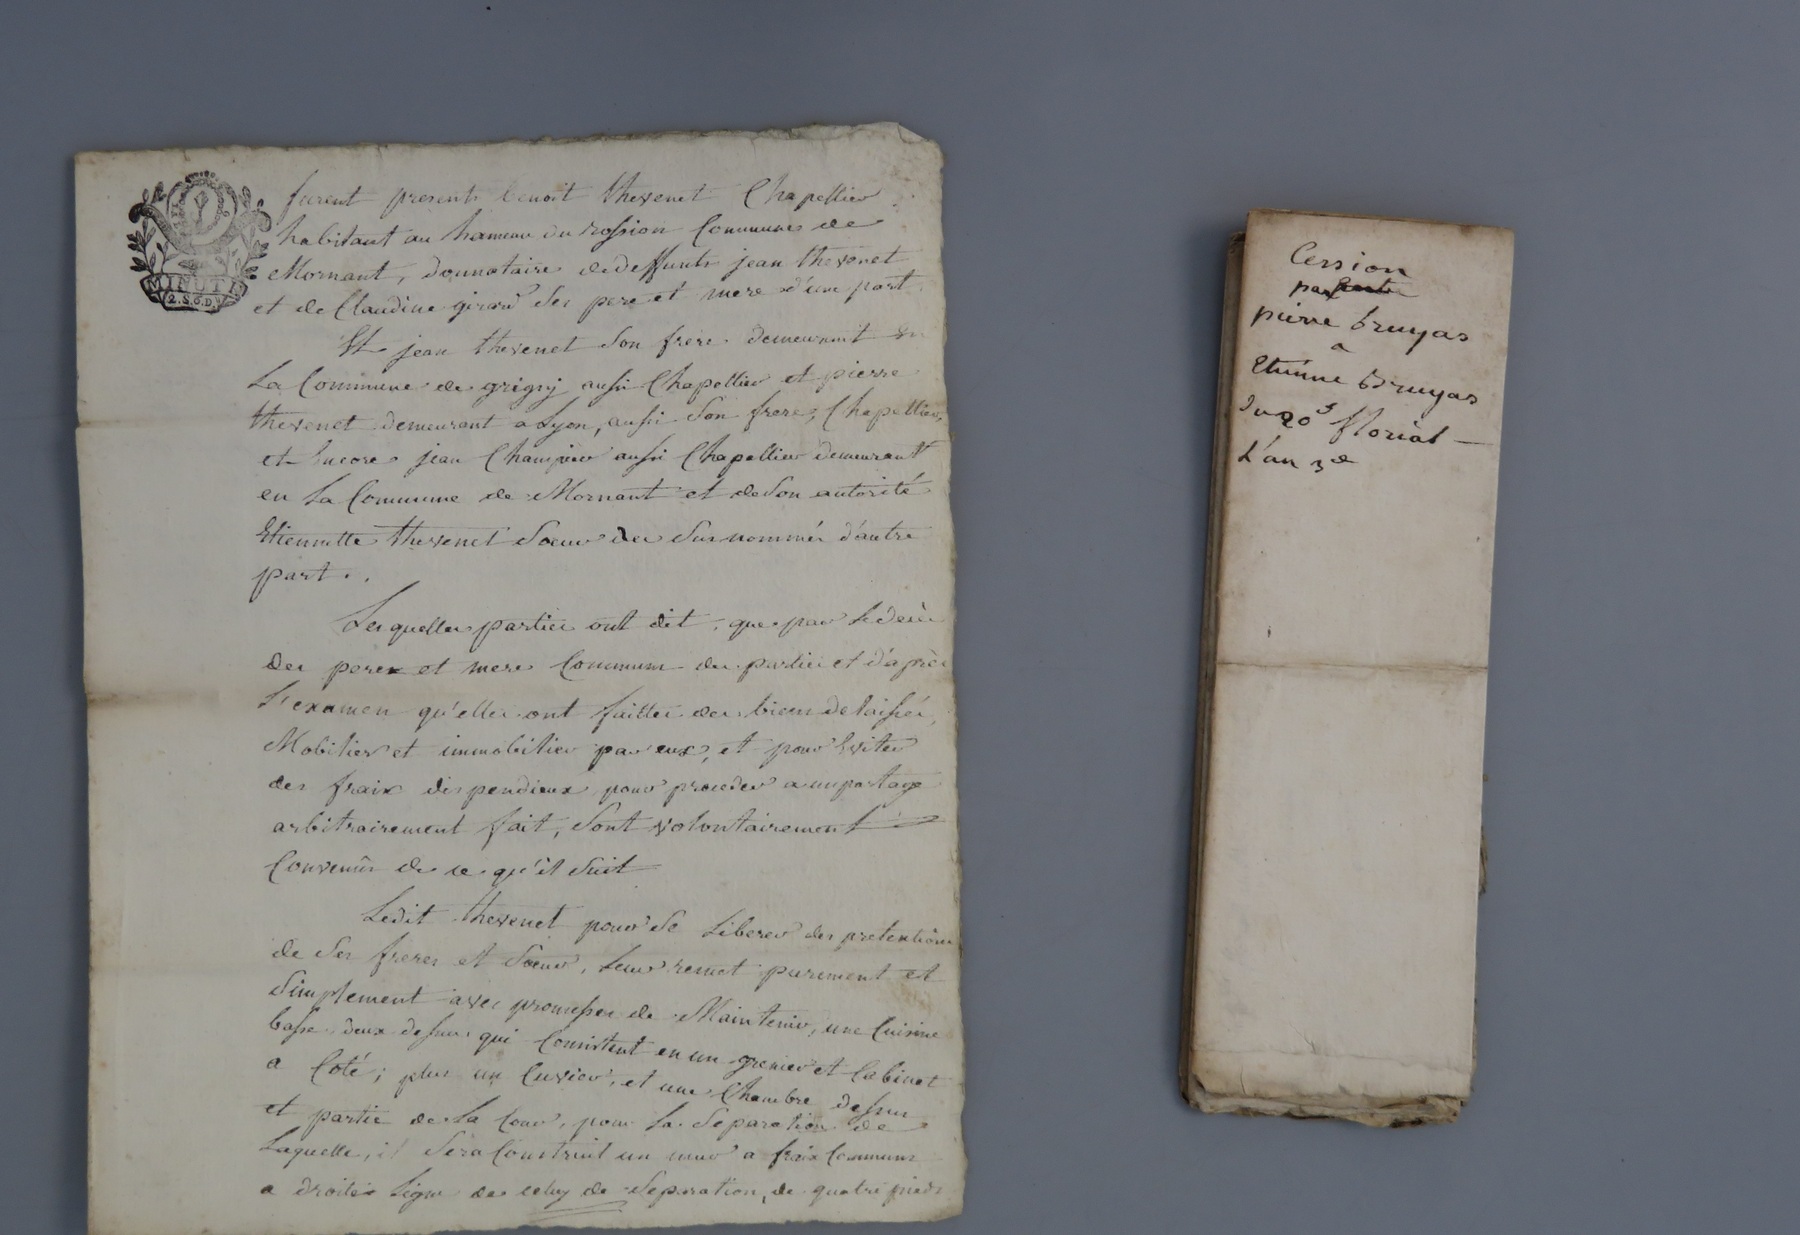 MINUTE
2.S.6.D.
furent presents benoit thevenet Chapellier
habitant au hameau du rossion Commune de
Mornant, donnataire de deffunts jean thevenet
et de Claudine girard Ses pere et mere d'une part.
Et jean thevenet Son frere demeurant en
La Commune de grigny aussi Chapellier et pierre
thevenet demeurant a Lyon, aussi Son frere, Chapellier,
et Encore jean Champier aussi Chapellier demeurant
en La Commune de Mornant et de Son autorité
Etiennette thevenet Soeur des Sus nommés d'autre
part.
Lesquelles parties ont dit, que par Le décès
des peres et mere Commun des parties et d'après
L'examen qu'elles ont faittes des biens delaissés,
Mobilier et immobilier par eux, et pour Eviter
des fraix dispendieux pour proceder a un partage
arbitrairement fait, Sont volontairement
Convenus de ce qu'il Suit
Ledit thevenet pour Se Liberer des pretentions
de Ses freres et Soeur, Leur remet purement et
Simplement avec promesses de Maintenir, une Cuisine
basse deux dessus qui Consistent en un grenier et Cabinet
a Coté; plus un Cuvier, et une Chambre dessus
et partie de La Cour, pour La Separation de
Laquelle, il Sera Construit un mur a fraix Communs
a droite Ligne de celuy de Separation, de quatre pieds
Cession
par
pierre bruyas
a
Etienne Bruyas
du 20 floréal
L'an 3e